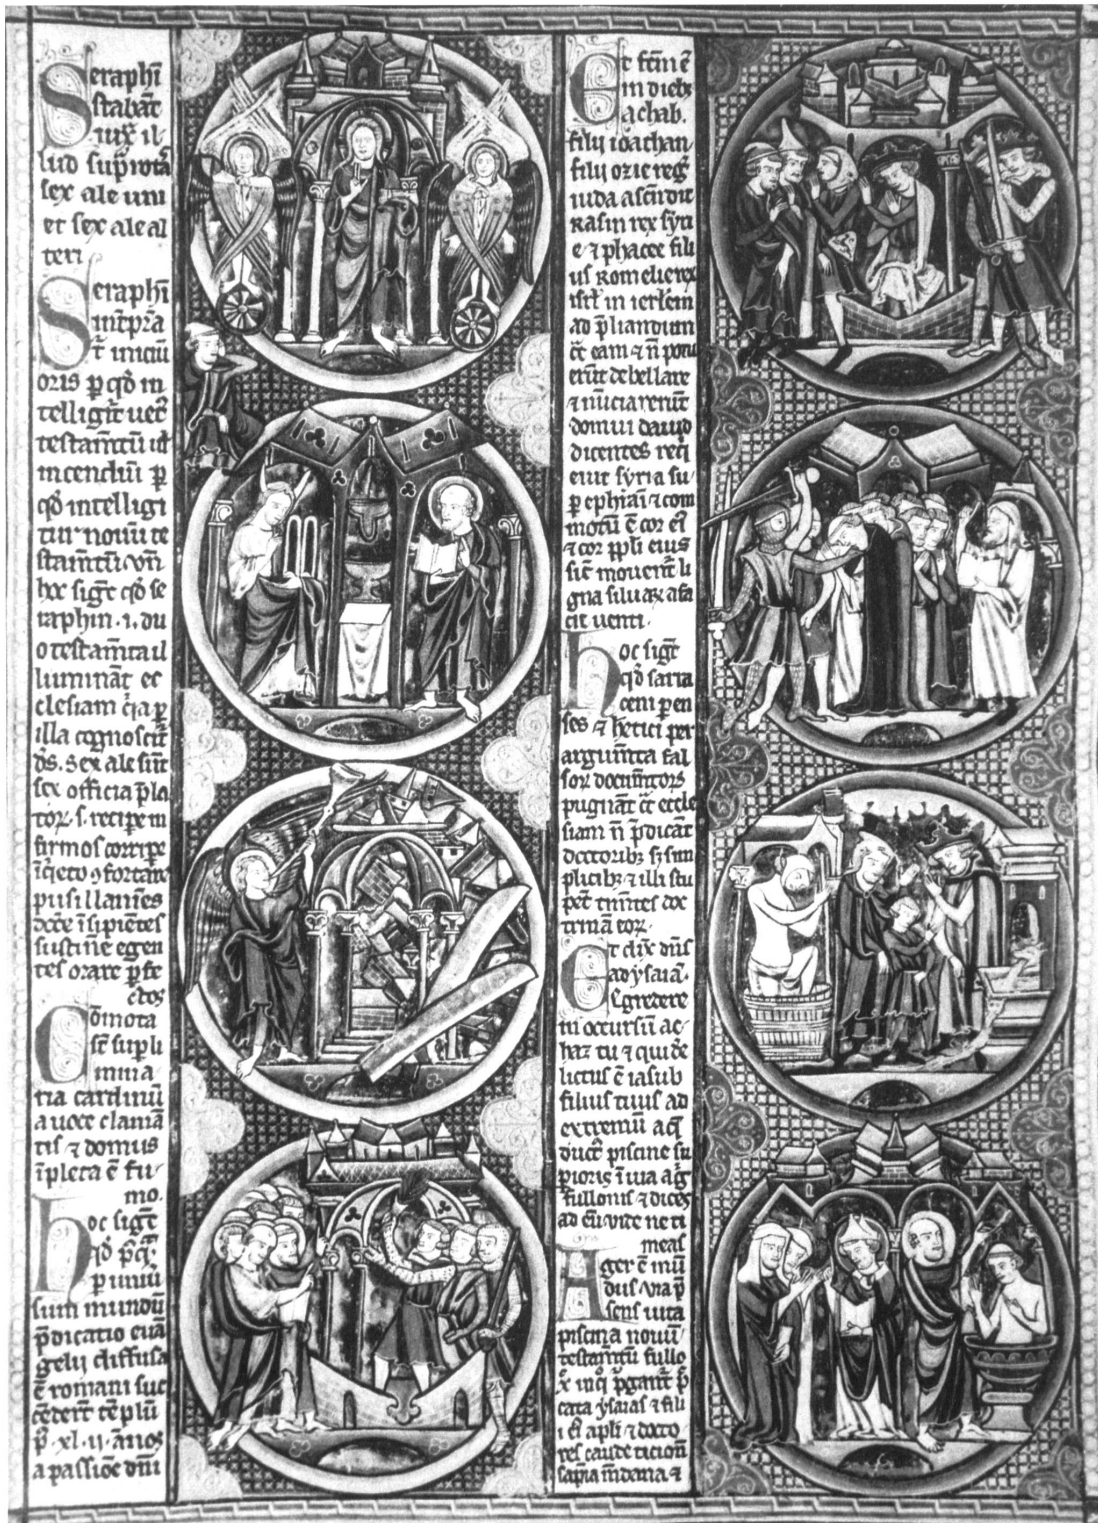 Seraphī
stabāt
iux̄ il
lud sup̄ rotā
sex ale uni
et sex ale al
teri
Seraphī
int̄pr̄a
t̄ inciū
oris ꝑ qd̄ in
telligit̄ uet̄
testam̄tū
incendiū ꝑ
qd̄ intelligi
tur nouū te
stam̄tū
hoc sigt̄ qd̄ se
raphin .i. du
o testam̄ta il
lumināt̄ ec
clesiam q̄a ꝑ
illa cognoscit̄
d̄s. Sex ale sūt
sex officia p̄la
toꝝ .s. recipe in
firmos corripe
īq̄eto 9fortare
pusillanīes
doce īsipiētes
sustine egen
tes orare ꝑ
ctos
Cōmota
st̄ supli
mina
ria cardinū
a uoce clamā
tis ⁊ domus
īpleta ē fu
mo.
hoc sigt̄
qd̄ p̄q̄
ꝑ uniū
sum mundū
p̄dicatio euā
gelii diffusa
ē romani suc
cēdert̄ tēplū
ꝑ .xl.ii. ānos
a passiōe dn̄i
Et fcm̄ ē
in dieb;
achab.
filii ioathan
filii ozie reḡ
iuda ascendit
Rasin rex syri
e ⁊ phacee fili
us Romelie rex
isrl̄ in ierl̄em
ad p̄liandum
c̄ eam ⁊ n̄ potu
erūt debellare
⁊ nūciauerūt
domui dauid
dicentes req̄
euit syria su
ꝑ ephraī ⁊ com
motū ē cor eꝰ
⁊ cor ppli eius
sic̄ mouent̄ li
gna siluaꝝ a fa
cie uenti.
hoc sigt̄
qd̄ sarra
ceni
⁊ hetici ꝑ
argum̄ta fal
soꝝ
pugnāt c̄ eccle
siam n̄ p̄dicāt
doctorib; s; sim
plicib; ⁊ illi stu
pēt
trinā eoꝝ.
Et dix̄ dn̄s
ad ysaiā.
Egredere
in occursū ac
haz tu ⁊ qui de
lictus ē iasub
filius tuus ad
extremū aq̄
duct̄ piscine su
perioris ī uia aḡ
fullonis ⁊ dices
ad eū uide ne ti
meas
Ager ē mū
dus uia p̄
sens uita
piscina nouū
testam̄tū fullo
p̄
cata ysaias ⁊ fili
i eꝰ apli ⁊ docto
res
sapīa mūdana ⁊